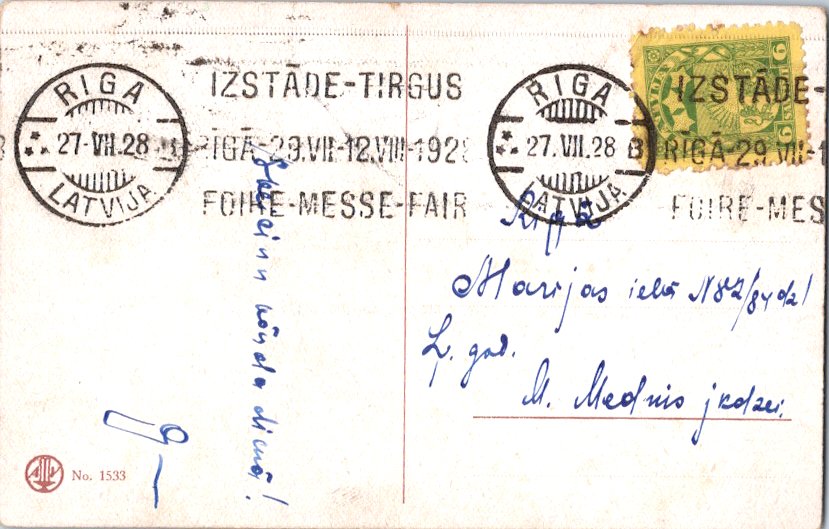 RIGA
27.VII.28
LATVIJA
IZSTĀDE-TIRGUS
RĪGĀ 29.VII-12.VIII-1928
FOIRE-MESSE-FAIR
RIGA
27.VII.28 B
LATVIJA
IZSTĀDE-
RĪGĀ-29.VII-1
FOIRE-MES
6
6
Sveicinu vārda dienā!
No. 1533
Rīgā
Marijas ielā N82/84 dz
L. god.
M. Mednis jkdzei.